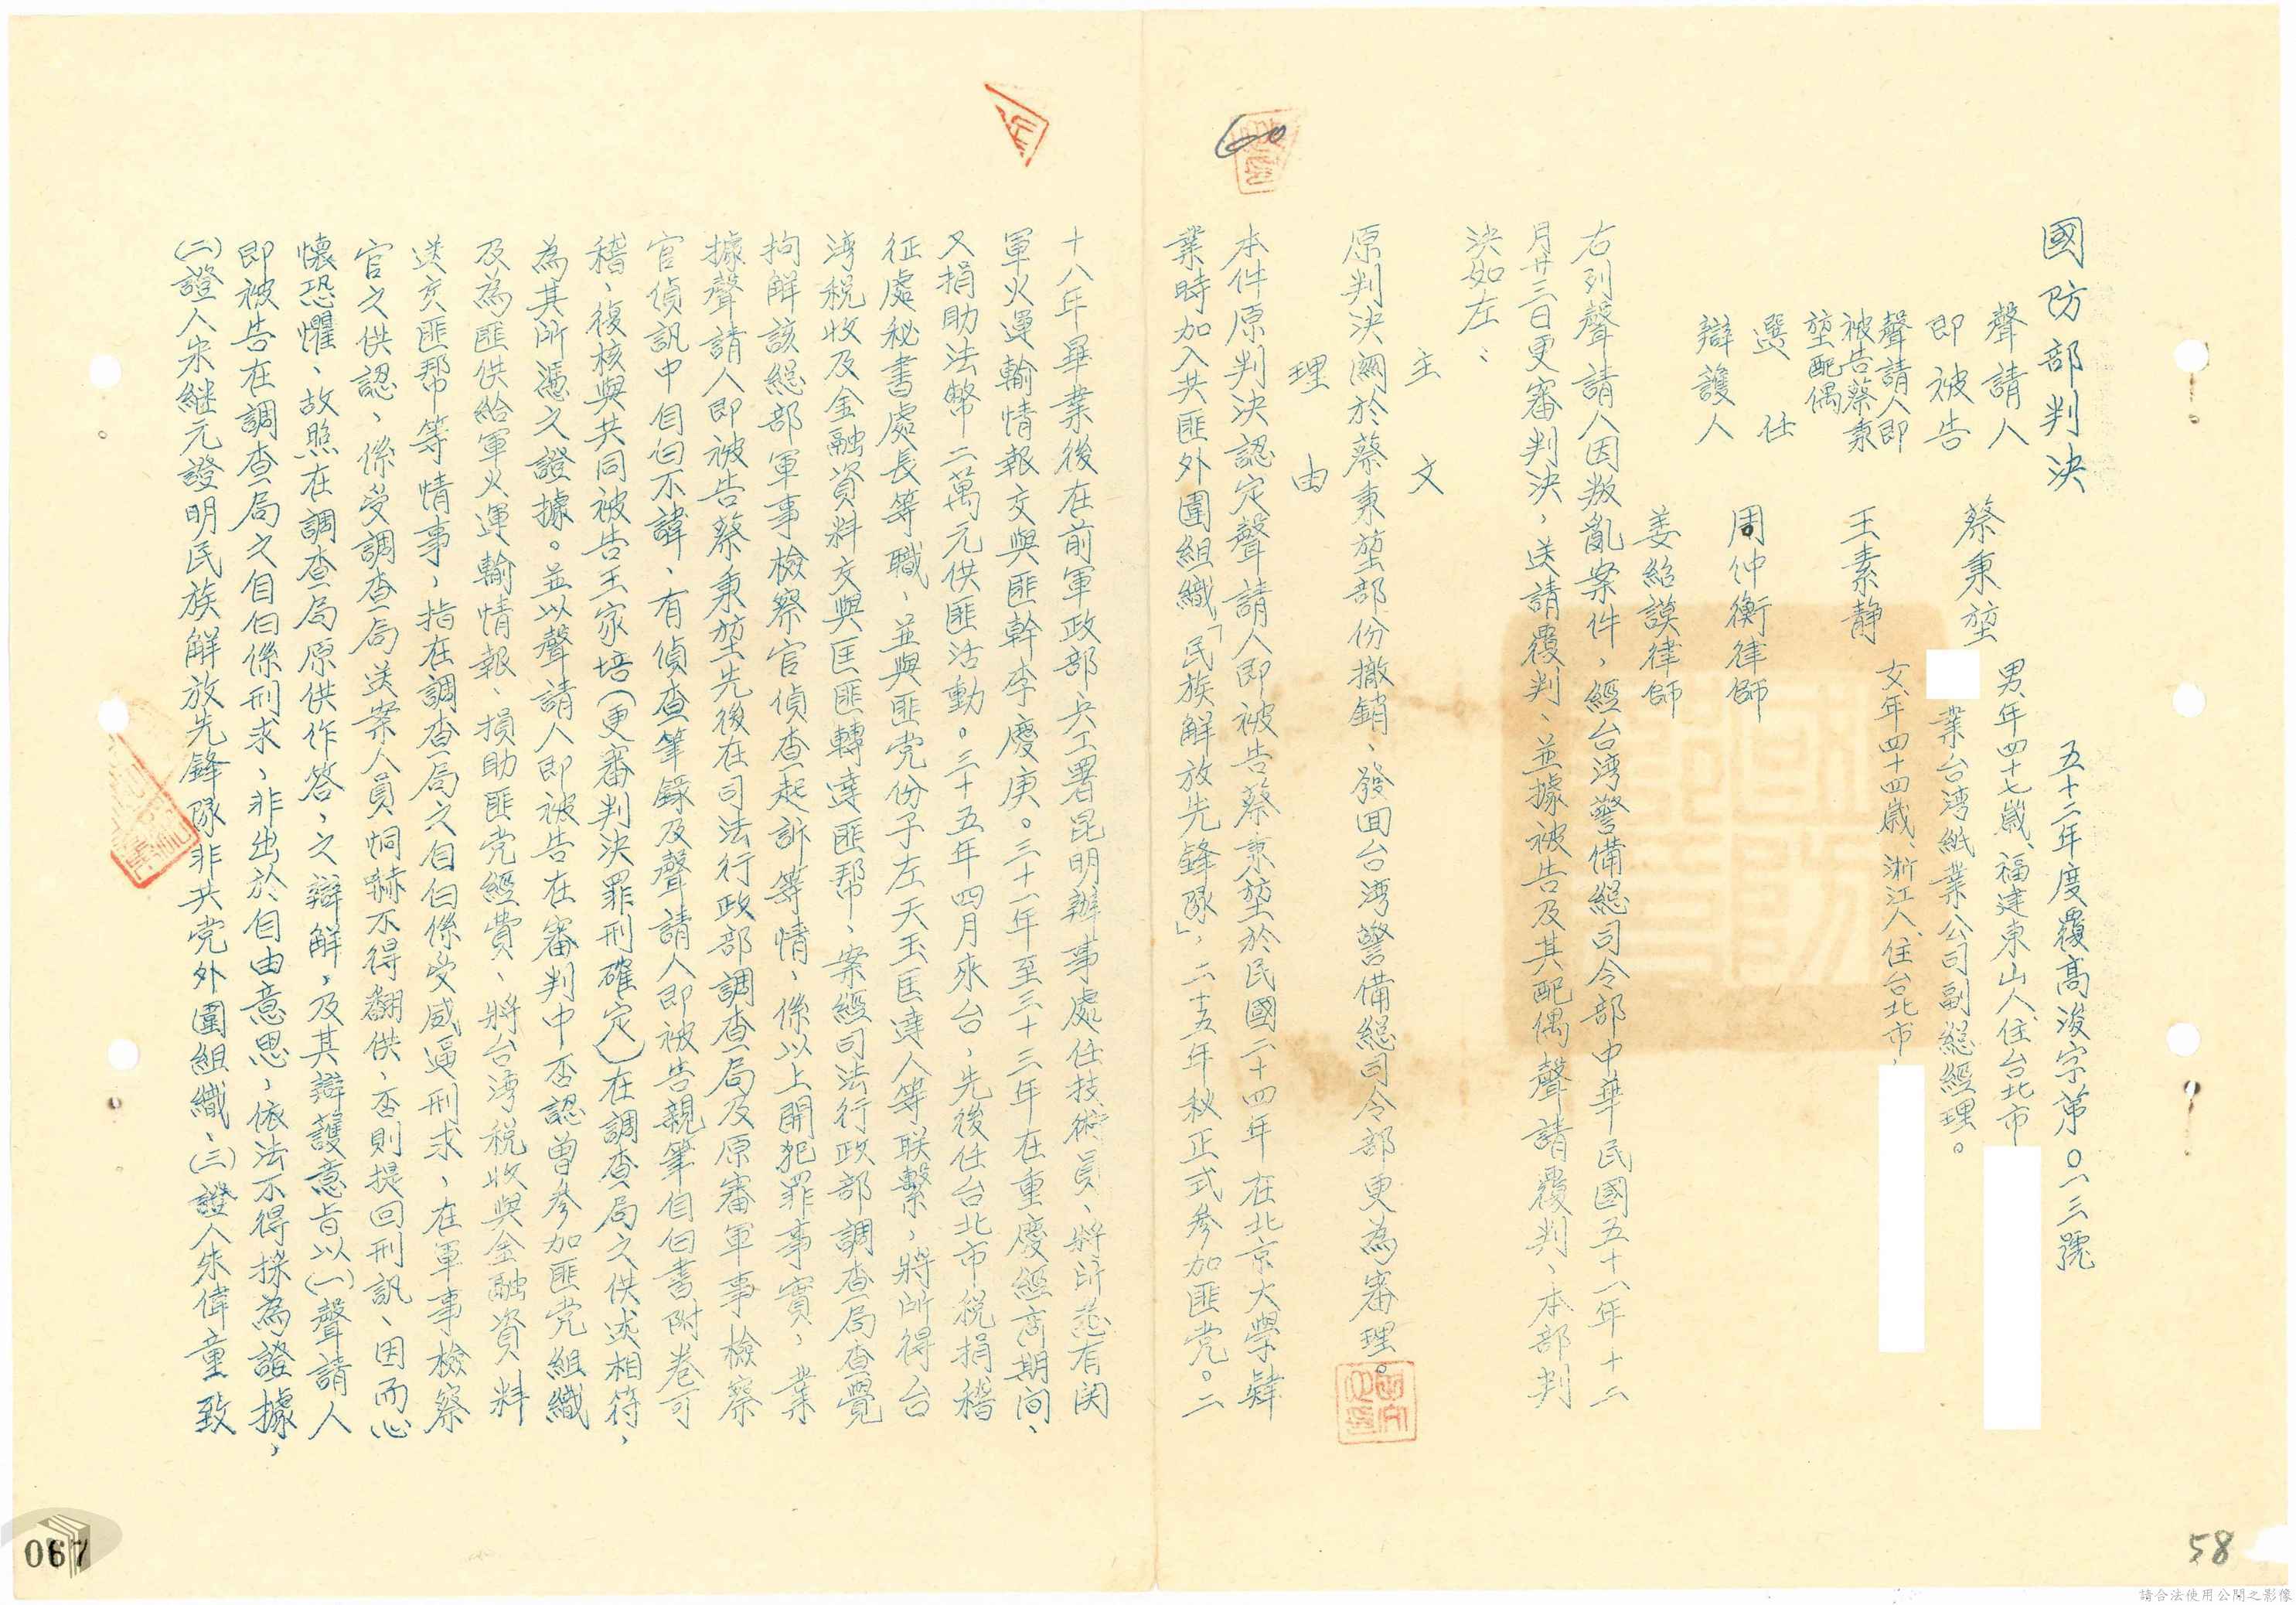 國防部判決
五十二年度覆高浚字第〇一三號
聲請人
即被告
蔡秉堃
男、年四十七歲、福建東山人、住台北市
業台湾紙業公司副總經理。
聲請人即
被告蔡秉
堃配偶
王素靜
女、年四十四歲、浙江人、住台北市、
選任
辯護人
周仲衡律師
姜紹謨律師
右列聲請人因叛亂案件，經台湾警備總司令部中華民國五十一年十二
月廿三日更審判決，送請覆判、並據被告及其配偶聲請覆判、本部判
決如左：
主文
原判決關於蔡秉堃部份撤銷、發回台湾警備總司令部更為審理。
理由
本件原判決認定聲請人即被告蔡秉堃於民國二十四年在北京大學肄
業時加入共匪外圍組織「民族解放先鋒隊」，二十五年秋正式參加匪党。二
十八年畢業後在前軍政部兵工署昆明辦事處任技術員、將所悉有関
軍火運輸情報交與匪幹李慶庚。三十一年至三十三年在重慶經商期间、
又捐助法幣二萬元供匪活動。三十五年四月來台，先後任台北市稅捐稽
征處秘書處長等職，並與匪党份子左天玉匡達人等联繫，將所得台
湾稅收及金融資料交與匡匪轉達匪幫、案經司法行政部調查局查覺
拘解該總部軍事檢察官偵查起訴等情，係以上開犯罪事實，業
據聲請人即被告蔡秉堃先後在司法行政部調查局及原審軍事檢察
官偵訊中自白不諱、有偵查筆錄及聲請人即被告親筆自白書附卷可
稽、復核與共同被告王家培（更審判決罪刑確定）在調查局之供述相符，
為其所憑之證據。並以聲請人即被告在審判中否認曾參加匪党組織
及為匪供給軍火運輸情報、損助匪党經費、將台湾稅收與金融資料
送交匪幫等情事，指在調查局之自白係受威逼刑求，在軍事檢察
官之供認、係受調查局送案人員恫嚇不得翻供，否則提回刑訊、因而心
懷恐懼、故照在調查局原供作答，之辯解，及其辯護意旨以（一）聲請人
即被告在調查局之自白係刑求，非出於自由意思，依法不得採為證據，
（二）證人宋継元證明民族解放先鋒隊非共党外圍組織、（三）證人朱偉童致
60
58
067
請合法使用公開之影像